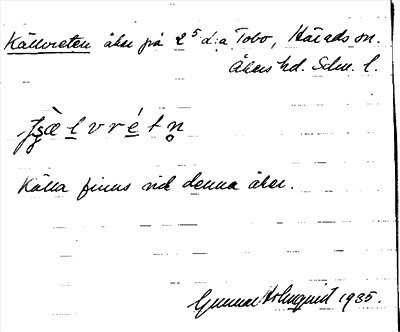 Källvreten åker på 2⁵ d:a Tobo, Härads sn.
Åkers hd. Sdm. l.
Källa finns vid denna åker.
Gunnar Holmquist 1935.